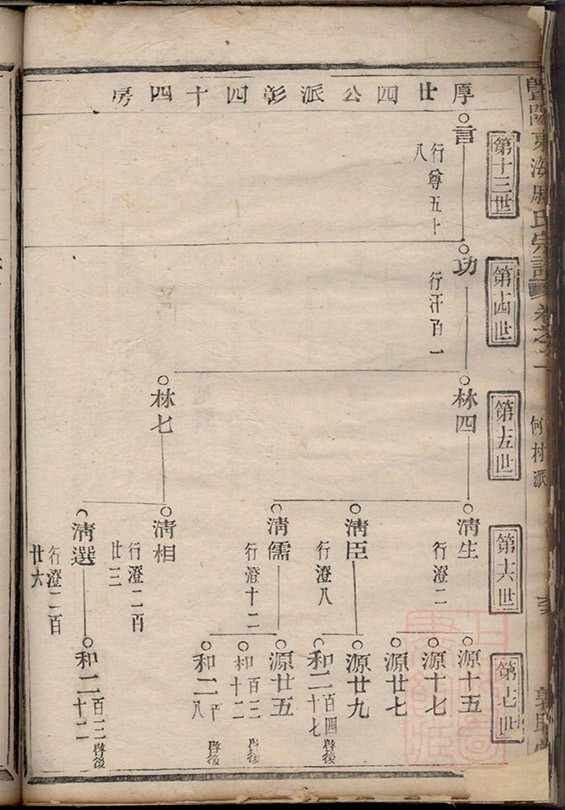 暨陽東海戚氏宗譜 卷之一 何村派
厚廿四公派彰四十四房
第十三世
言
行尊五十八
第十四世
功
行汗百一
第十五世
林四
林七
第十六世
清生
行澄二
清臣
行澄八
清儒
行澄十二
清相
行澄二百廿三
清選
行澄二百廿六
第十七世
源十五
源十七
源廿七
源廿九
和二百四十七
源廿五
和百三十二
和二百八
和二百二十二